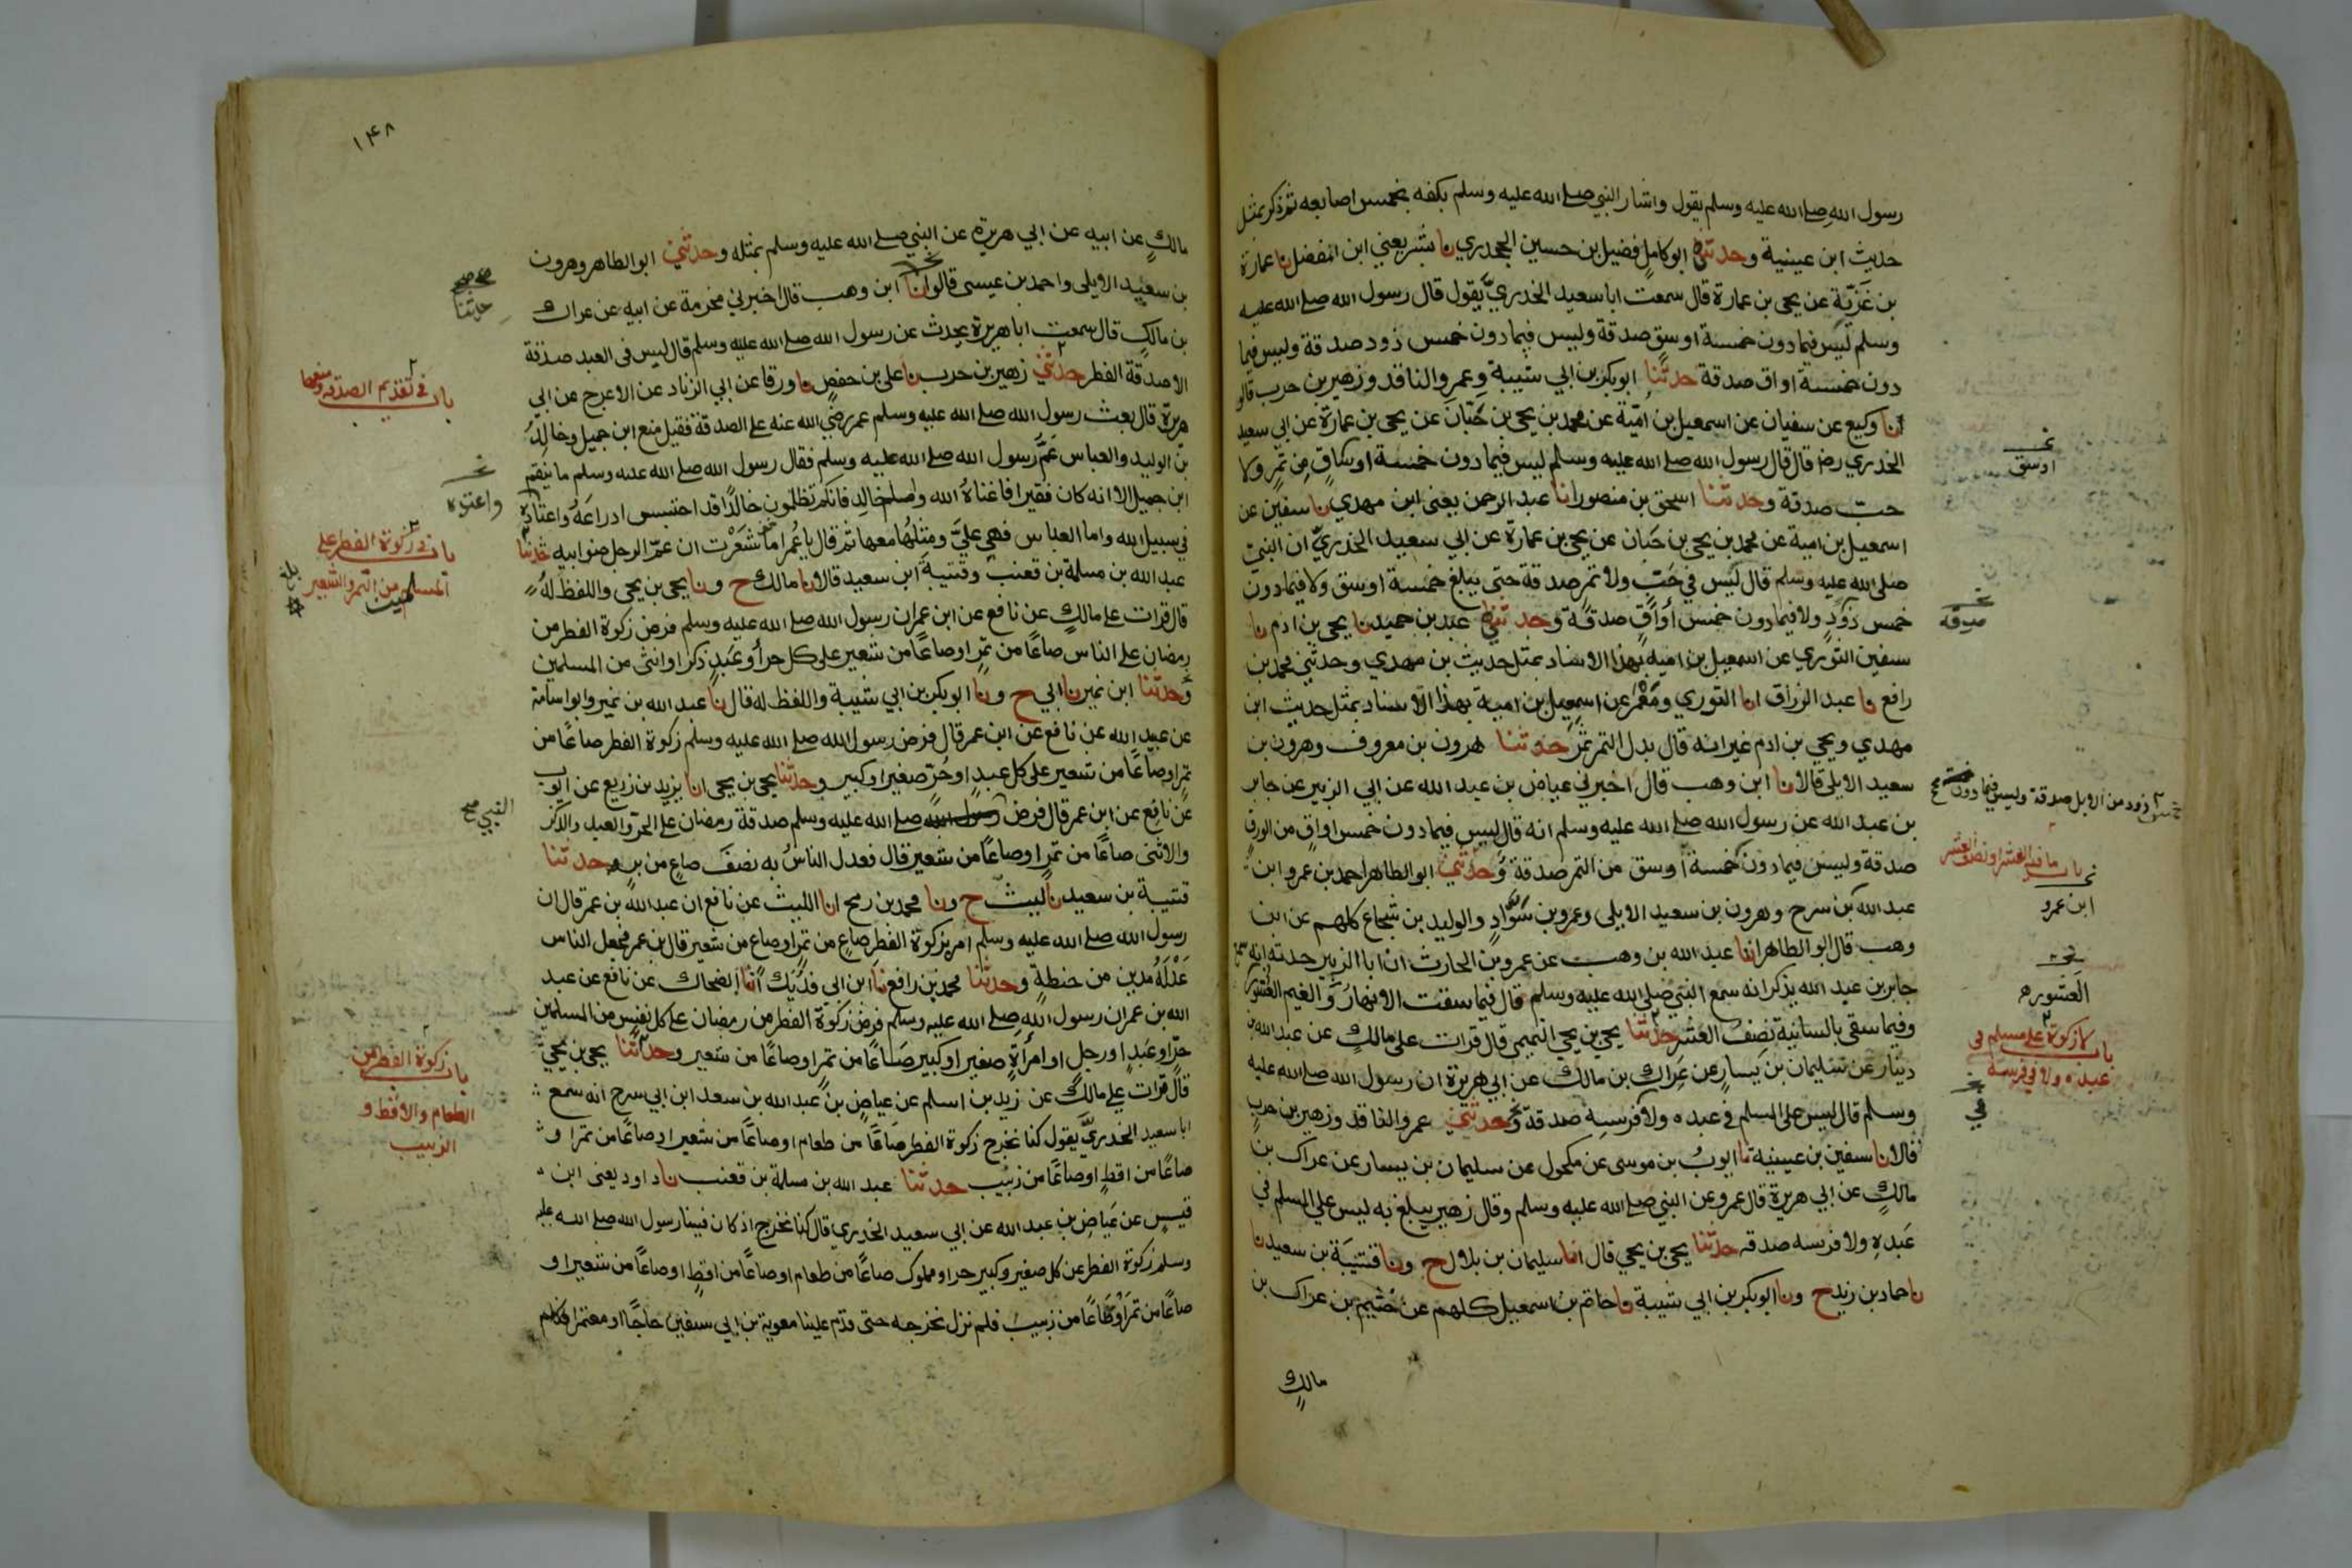 رسول الله صلى الله عليه وسلم يقول واشار النبي صلى الله عليه وسلم بكفه بخمس اصابعه ثم ذكر بمثل
حديث ابن عيينة وحدثني ابو كامل فضيل بن حسين الجحدري نا بشر يعني ابن المفضل نا عمارة
بن غَزِيّة عن يحيى بن عمارة قال سمعت ابا سعيد الخدريّ يقول قال رسول الله صلى الله عليه
وسلم ليس فيما دون خمسة اوسق صدقة وليس فيما دون خمس ذود صدقة وليس فيما
دون خمسة اواق صدقة حدثنا ابو بكر بن ابي شيبة وعمرو الناقد وزهير بن حرب قالو
انا وكيع عن سفيان عن اسمعيل بن اميّة عن محمد بن يحيى بن حَبّانَ عن يحيى بن عمارة عن ابي سعيد
الخدري رضا قال قال رسول الله صلى الله عليه وسلم ليس فيما دون خمسة اوساقٍ مِن تمرٍ ولا
حبٍّ صدقة وحدثنا اسحق بن منصور انا عبد الرحمن يعنى ابن مهدي نا سفين عن
اسمعيل بن امية عن محمد بن يحيى بن حَبان عن يحيى بن عمارة عن ابي سعيد الخدريّ ان النبيّ
صلى الله عليه وسلم قال ليس في حَبّ ولا تمرٍ صدقة حتى يبلغ خمسة اوسق ولا فيما دون
خمس ذَودٍ ولا فيما دون خمس أواقٍ صدقة وحدثني عبد بن حميد نا يحيى بن ادم نا
سفين الثوري عن اسمعيل بن امية بهذا الاسناد بمثل حديث بن مهدي وحدثني محمد بن
رافع نا عبد الرزاق انا الثوري ومَعْمَر عن اسمعيل بن امية بهذا الاسناد بمثل حديث ابن
مهدي ويحيى بن ادم غير انه قال بدل التمر ثمر حدثنا هرون بن معروف وهرون بن
سعيد الايلى قالا نا ابن وهب قال اخبرني عياض بن عبد الله عن ابي الزبير عن جابر
بن عبد الله عن رسول الله صلى الله عليه وسلم انه قال ليس فيما دون خمس اواقٍ من الورِقِ
صدقة وليس فيما دون خمسة اوسق من التمر صدقة وحدثني ابو الطاهر احمد بن عمرو ابن
عبد الله بن سرح وهرون بن سعيد الايلى وعمرو بن سَوّادٍ والوليد بن شجاع كلهم عن ابن
وهب قال ابو الطاهر انا عبد الله بن وهب عن عمرو بن الحارث ان ابا الزبير حدثه انه سمع
جابر بن عبد الله يذكر انه سمع النبي صلى الله عليه وسلم قال فيما سقت الانهارُ والغيم العُشور
وفيما سقى بالسانية نصف العُشر حدثنا يحيى بن يحيى التميمي قال قرات على مالكٍ عن عبد الله بن
دينار عن سليمان بن يسارٍ عن عِراك بن مالك عن ابي هريرة ان رسول الله صلى الله عليه
وسلم قال ليس على المسلم في عبده ولا فرسِه صدقة وحدثني عمرو الناقد وزهير بن حربٍ
قالا نا سفين بن عيينة نا ايوبُ بن موسى عن مكحول عن سليمان بن يسار عن عراك بن
مالكٍ عن ابي هريرة قال عمرو عن النبي صلى الله عليه وسلم وقال زهير يبلغ به ليس على المسلم في
عَبدِهِ ولا فرسه صدقه حدثنا يحيى بن يحيى قال انا سليمان بن بلال ح ونا قتيبَة بن سعيد نا
نا حماد بن زيد ح ونا ابو بكر بن ابي شيبة نا حاتم بن اسمعيل كلهم عن خُثيم بن عراك بن
مالكٍ
اوسق
صدقة
باب ما فيه العشر او نصف العشر
ابن عمرو
العَشور
باب لا زكوة على مسلم في
عبده ولا في فرسه
في
١٤٨
مالكٍ عن ابيه عن ابي هريرة عن النبي صلى الله عليه وسلم بمثله وحدثني ابو الطاهر وهرون
بن سعيد الايلى واحمد بن عيسى قالوا نا ابن وهب قال اخبرني مخرمة عن ابيه عن عراك
بن مالكٍ قال سمعت ابا هريرة يحدث عن رسول الله صلى الله عليه وسلم قال ليس فى العبد صدقة
الا صدقة الفطر حدثني زهير بن حرب نا على بن حفصٍ نا ورقا عن ابي الزناد عن الاعرج عن ابى
هريرة قال بعث رسول الله صلى الله عليه وسلم عمر رضي الله عنه على الصدقة فقيل منع ابن جميل وخالدُ
بن الوليد والعباس عَمّ رسول الله صلى الله عليه وسلم فقال رسول الله صلى الله عليه وسلم ما ينقم
ابن جميل الا انه كان فقيرا فاغناهُ الله واما خالد فانكم تظلمون خالدًا قد احتبس ادراعَهُ واعتاده
في سبيل الله واما العباس فهي عليَّ ومِثلُها معها ثم قال يا عُمر اما شَعَرْت ان عمّ الرجل صنو ابيه حدثنا
عبد الله بن مسلمة بن قعنب وقتيبة ابن سعيد قالا نا مالك ح ونا يحيى بن يحيى واللفظ لهُ
قال قرات على مالكٍ عن نافع عن ابن عمر ان رسول الله صلى الله عليه وسلم فرض زكوة الفطر من
رمضان على الناس صاعًا من تمرٍ او صاعًا من شعير على كل حر أو عَبدٍ ذكر او انثى من المسلمين
وحدثنا ابن نمير نا ابي ح ونا ابو بكر بن ابي شيبة واللفظ له قال نا عبد الله بن نمير وابو اسامة
عن عبيد الله عن نافع عن ابن عمر قال فرض رسول الله صلى الله عليه وسلم زكوة الفطر صاعًا من
تمرٍ او صاعًا من شعير على كل عبدٍ او حُرّ صغير او كبير وحدثنا يحيى بن يحيى انا يزيد بن زريع عن ايوب
عن نافع عن ابن عمر قال فرض رسول الله صلى الله عليه وسلم صدقة رمضان على الحر والعبد والذكر
والانثى صاعًا من تمرٍ او صاعًا من شعير قال فعدل الناسُ به نصفَ صاعٍ من برٍ حدثنا
قتيبة بن سعيد نا ليث ح ونا محمد بن رمح انا الليث عن نافع ان عبد الله بن عمر قال ان
رسول الله صلى الله عليه وسلم امر بزكوة الفطر صاعٍ من تمرٍ او صاع من شعير قال بن عمر فجعل الناس
عَدْلَهُ مدين من حنطةٍ وحدثنا محمد بن رافع نا ابن ابى فُدَيك انا الضحاك عن نافع عن عبد
الله بن عمر ان رسول الله صلى الله عليه وسلم فرض زكوة الفطر من رمضان على كل نفسٍ من المسلمين
حرٍّ او عبدٍ او رجلٍ او امرأةٍ صغير او كبير صَاعًا من تمرٍ او صاعًا من شعير وحدثنا يحيى بن يحيى
قال قرات على مالك عن زيد بن اسلم عن عياض بن عبد الله بن سعد ابن ابي سرح انه سمع
ابا سعيد الخدريَّ يقول كنا نخرج زكوة الفطر صَاعًا من طعام او صاعًا من شعير او صاعًا من تمر او
صاعًا من اقطٍ او صاعًا من زبيب حدثنا عبد الله بن مسلمة بن قعنب نا داود يعنى ابن
قيسٍ عن عِيَاضِ بن عبد الله عن ابي سعيد الخدري قال كنا نخرج اذ كان فينا رسول الله صلى الله عليه
وسلم زكوة الفطر عن كل صغير وكبير حر او مملوك صاعًا من طعام او صاعًا من اقطٍ او صاعًا من شعير او
صاعًا من تمر أو صاعًا من زبيب فلم نزل نخرجه حتى قدم علينا معوية بن ابي سفين حاجًّا او معتمرا فكلم
حدثنا
باب في تقديم الصدقة ومنعها
واعتده
باب في زكوة الفطر على
المسلمين من التمر والشعير
النبي صح
باب زكوة الفطر من
الطعام والاقط و
الزبيب